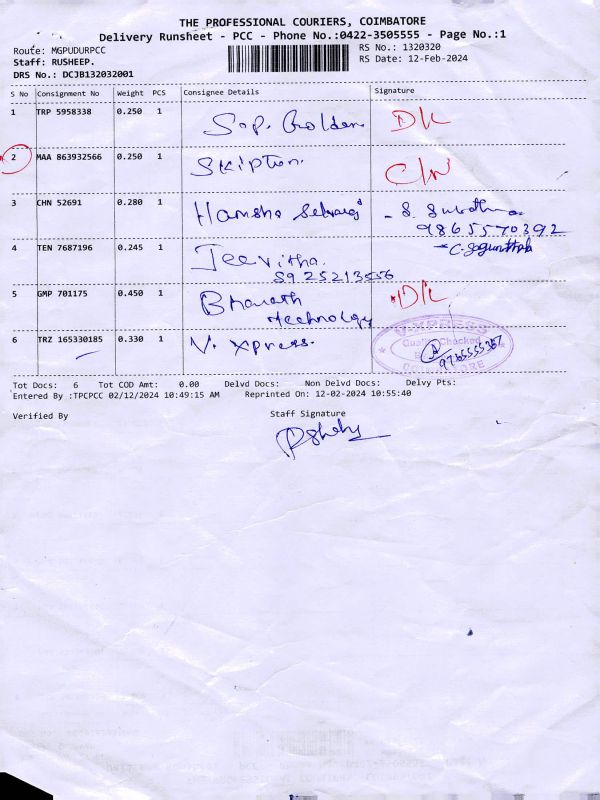 THE PROFESSIONAL COURIERS, COIMBATORE
Delivery Runsheet - PCC - Phone No.:0422-3505555 - Page No.:1
Route: MGPUDURPCC RS No.: 1320320
Staff: RUSHEEP. RS Date: 12-Feb-2024
DRS No.: DCJB132032001
S No Consignment No Weight PCS Consignee Details Signature
1 TRP 5958338 0.250 1 Sop. Golden. D/L
2 MAA 863932566 0.250 1 Skiption. C/N
3 CHN 52691 0.280 1 Hamsha Selvaraj - S.
9865570392
4 TEN 7687196 0.245 1 Jeevitha.
5925213556
5 GMP 701175 0.450 1 Bharath D/L
technology
6 TRZ 165330185 0.330 1 V. xpress. V-XPRESS
Quality Checked
9765555367
COIMBATORE
Tot Docs: 6 Tot COD Amt: 0.00 Delvd Docs: Non Delvd Docs: Delvy Pts:
Entered By :TPCPCC 02/12/2024 10:49:15 AM Reprinted On: 12-02-2024 10:55:40
Verified By Staff Signature